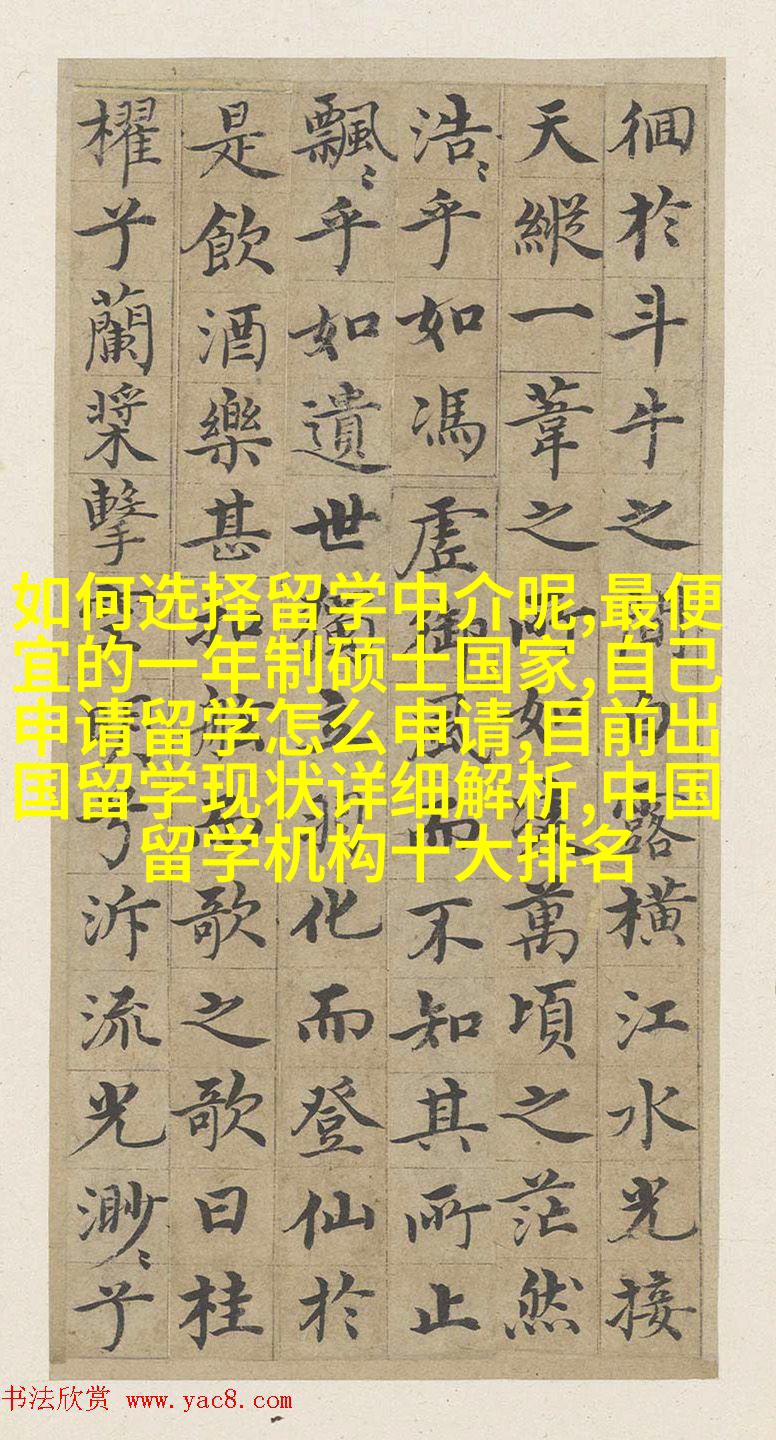 徊於斗牛之間白露橫江水光接
天縱一葦之所如淩萬頃之茫然
浩〻乎如馮虛御風而不知其所止
飄〻乎如遺世獨立羽化而登仙於
是飲酒樂甚扣舷而歌之歌曰桂
櫂兮蘭槳擊空明兮泝流光渺〻兮
如何选择留学中介呢,最便
宜的一年制硕士国家,自己
申请留学怎么申请,目前出
国留学现状详细解析,中国
留学机构十大排名
书法欣赏 www.yac8.com